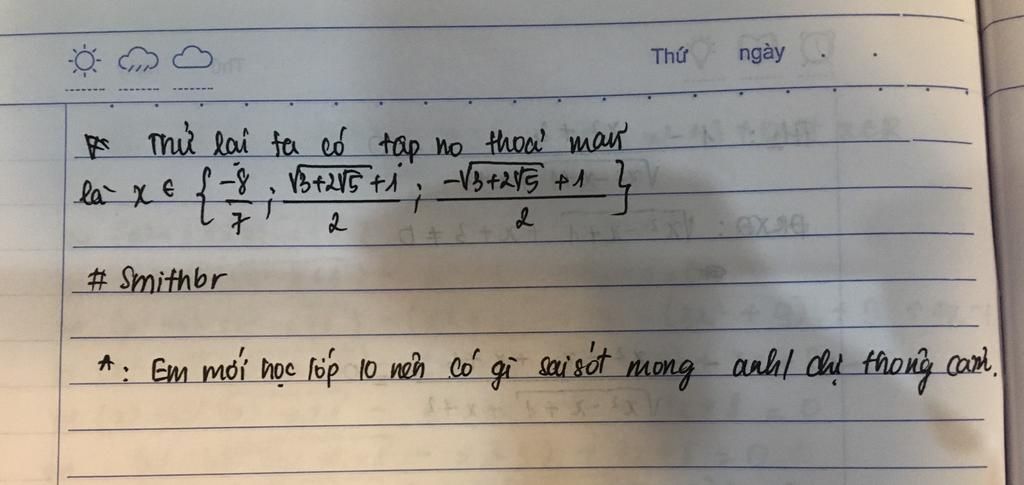 Thứ ngày
Thử lại ta có tập no thoả mãn
là x ∈ { -8/7 ; (√(3+2√5) + 1)/2 ; (-√(3+2√5) + 1)/2 }
# Smithbr
*: Em mới học lớp 10 nên có gì sai sót mong anh/ chị thông cảm.